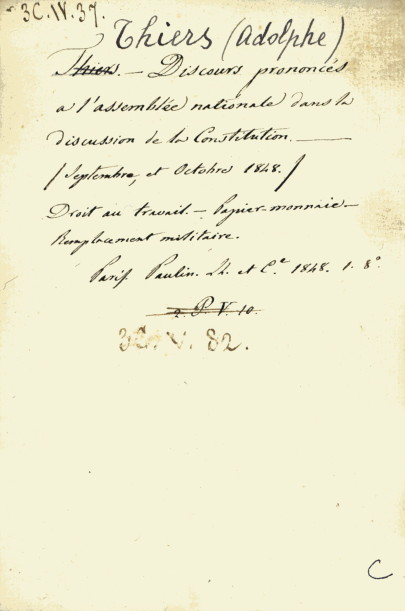 3C.IV.37.
Thiers (Adolphe)
Thiers. — Discours prononcés
a l'assemblée nationale dans la
discussion de la Constitution. —
/ Septembre, et Octobre 1848. /
Droit au travail. — Papier-monnaie. —
Remplacement militaire.
Paris. Paulin. Lh. et C.ie 1848. 1. 8°.
2. P. V. 10.
3C. V. 82.
C